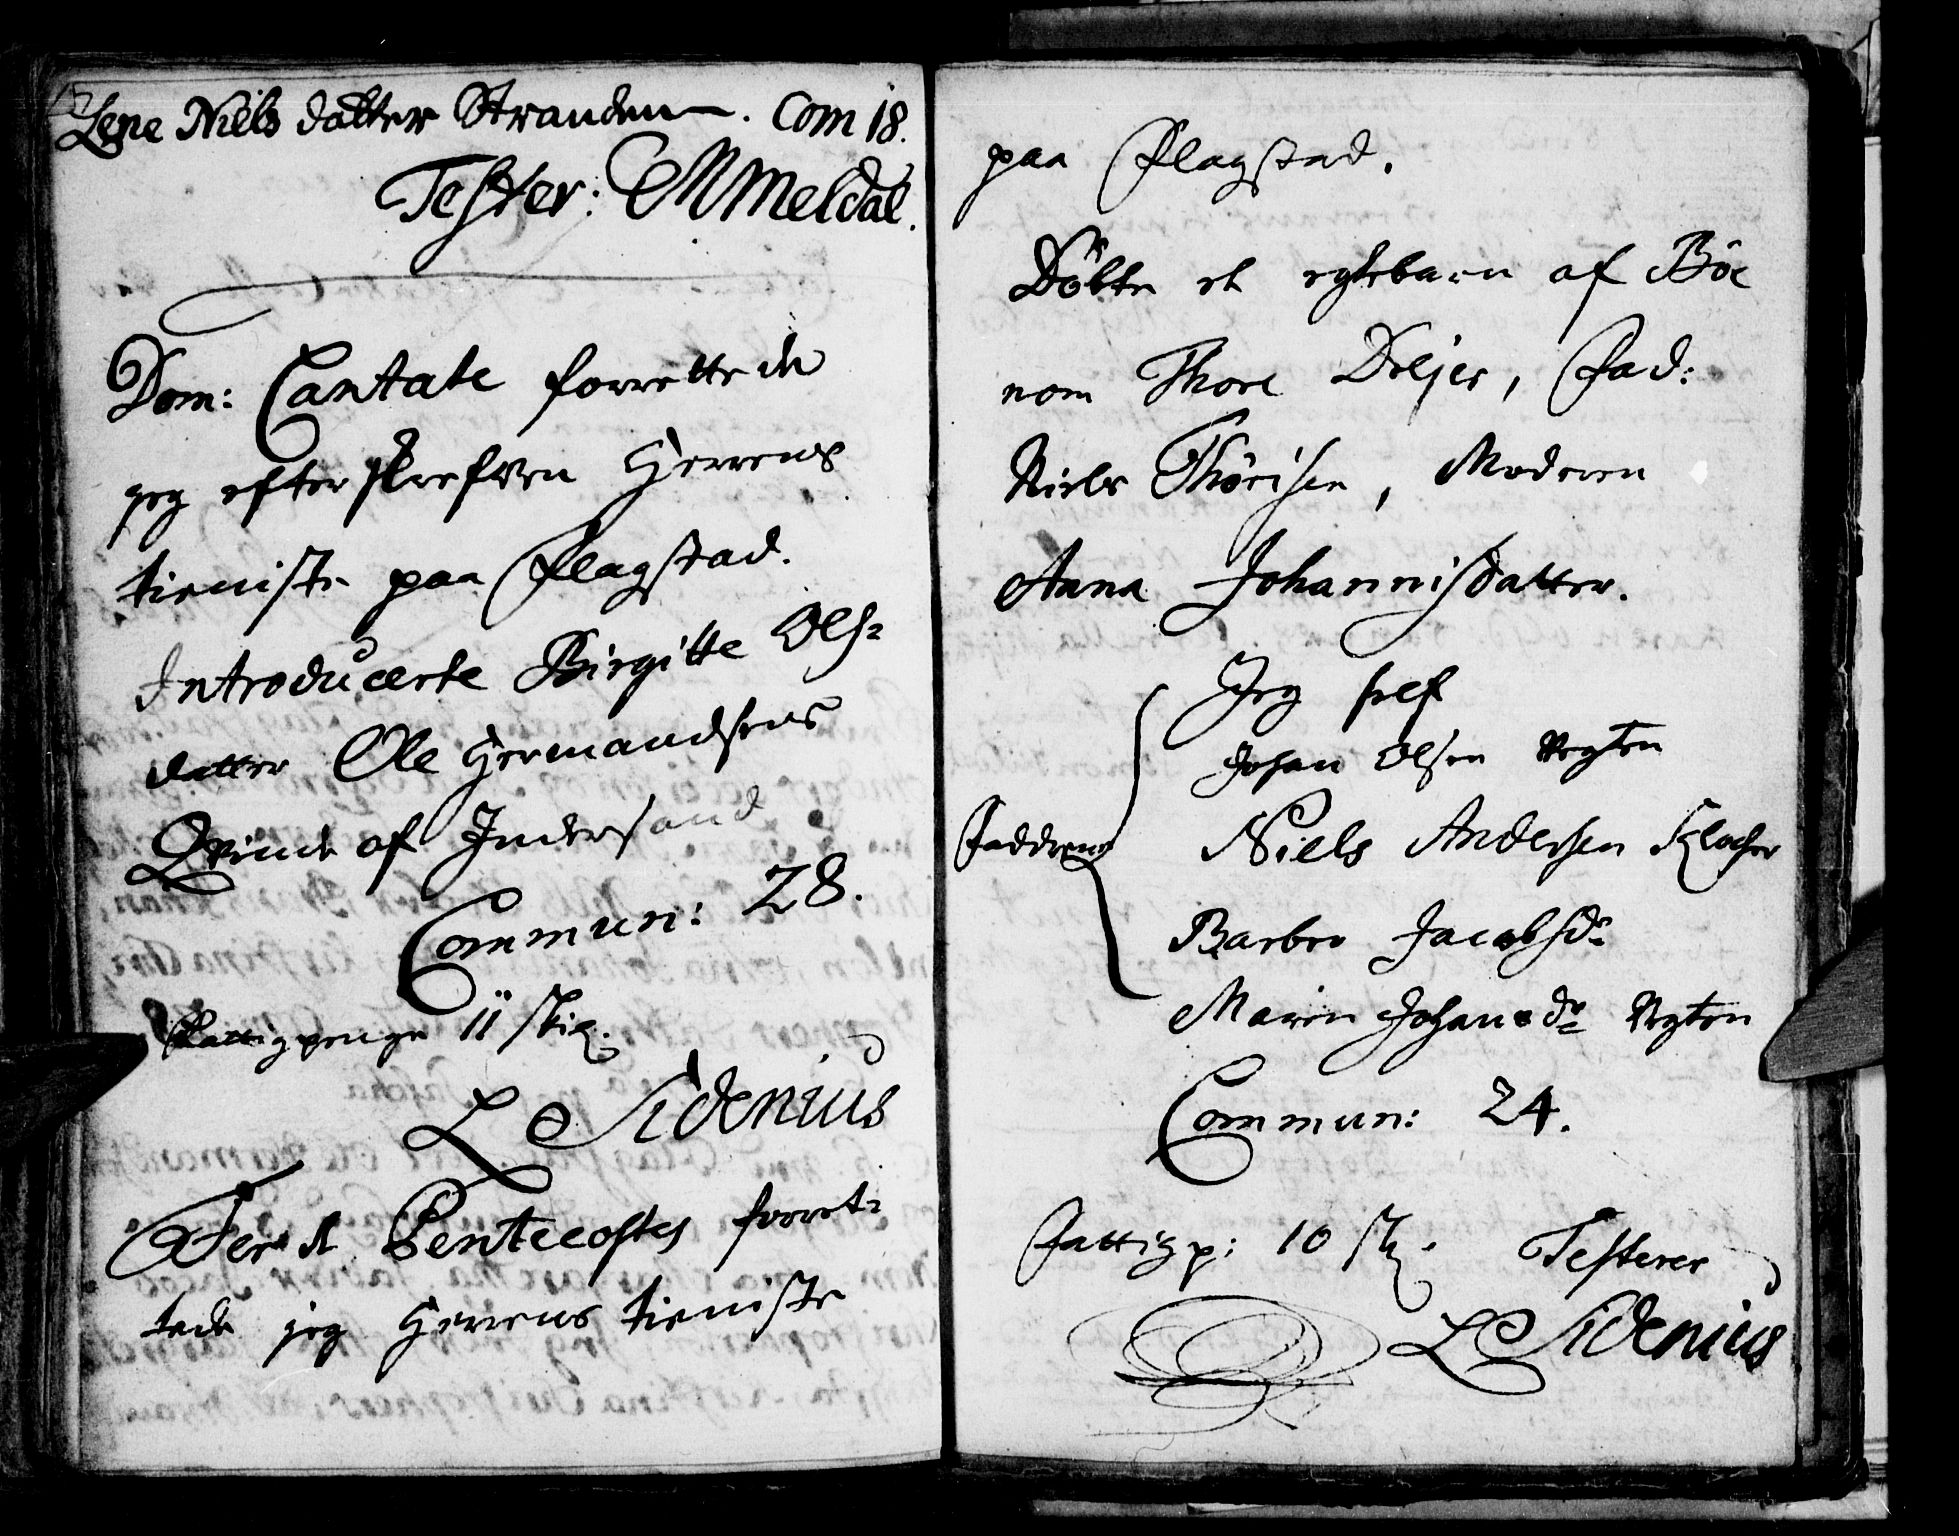 Lene Niels datter Stranden. Com 18.
Tester: CMMeldal.
Dom: Cantate forrettede
jeg efterskrefven Herrens
tieniste paa Flagstad.
Introducerte Birgitte Ols-
datter Ole Hermandsens
Qvinde af Indersand
Commun: 28.
Fattigpenge 11 skil.
L Sidenius
Fer: 2 Pentecostes forret-
tede jeg Herrens tieniste
paa Flagstad.
Døbte et egtebarn af Bøe
nom Thore Drejer, Fad:
Niels Thørisen, Moderen
Anna Johannisdatter.
Jeg self
Johan Olsen Vegten
Fadderne Niels Andersen Klocher
Barbro Jacobsdr
Maren Johansdr Vegten
Commun: 24.
Fattigp: 10 sk. Testerer
L Sidenius